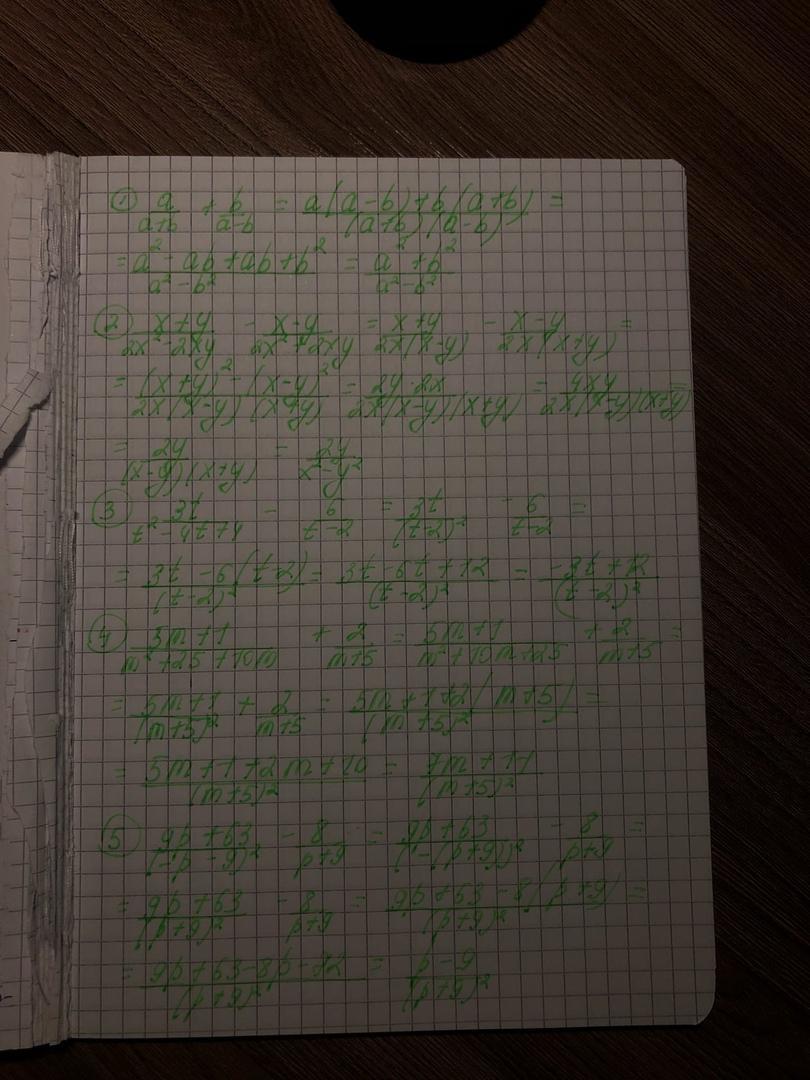 ① a/(a+b) + b/(a-b) = (a(a-b)+b(a+b))/((a+b)(a-b)) =
= (a²-ab+ab+b²)/(a²-b²) = (a²+b²)/(a²-b²)
② (x+y)/(2x²-2xy) - (x-y)/(2x²+2xy) = (x+y)/(2x(x-y)) - (x-y)/(2x(x+y)) =
= ((x+y)²-(x-y)²)/(2x(x-y)(x+y)) = (2y·2x)/(2x(x-y)(x+y)) = 4xy/(2x(x-y)(x+y)) =
= 2y/((x-y)(x+y)) = 2y/(x²-y²)
③ 3t/(t²-4t+4) - 6/(t-2) = 3t/(t-2)² - 6/(t-2) =
= (3t-6(t-2))/(t-2)² = (3t-6t+12)/(t-2)² = (-3t+12)/(t-2)²
④ (5m+1)/(m²+25+10m) + 2/(m+5) = (5m+1)/(m²+10m+25) + 2/(m+5) =
= (5m+1)/(m+5)² + 2/(m+5) = (5m+1+2(m+5))/(m+5)² =
= (5m+1+2m+10)/(m+5)² = (7m+11)/(m+5)²
⑤ (9p+63)/(-p-9)² - 8/(p+9) = (9p+63)/(-(p+9))² - 8/(p+9) =
= (9p+63)/(p+9)² - 8/(p+9) = (9p+63-8(p+9))/(p+9)² =
= (9p+63-8p-72)/(p+9)² = (p-9)/(p+9)²